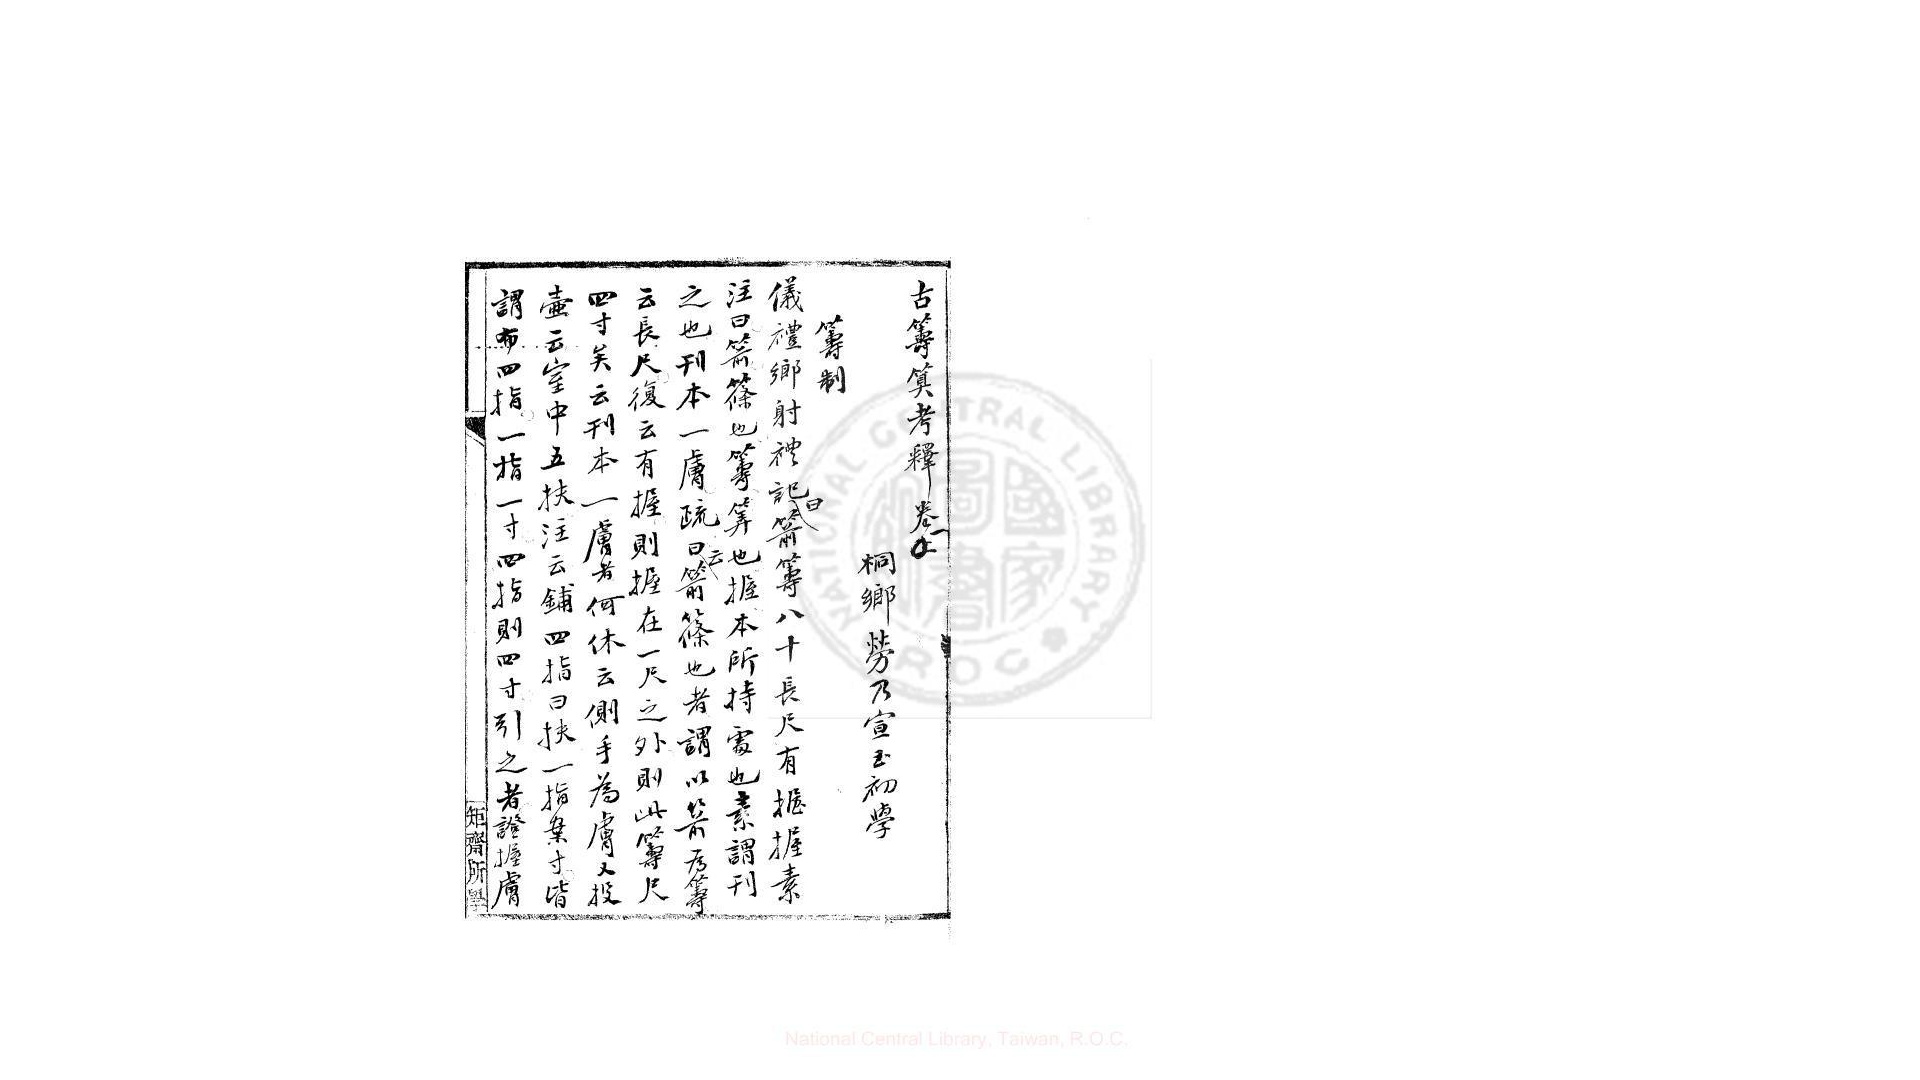 古籌算考釋卷一
桐鄉勞乃宣玉初學
籌制
儀禮鄉射禮記曰箭籌八十長尺有握握素
注曰箭篠也籌筭也握本所持處也素謂刊
之也刊本一膚疏曰云箭篠也者謂以箭為籌
云長尺復云有握則握在一尺之外則此籌尺
四寸矣云刊本一膚者何休云側手為膚又投
壺云室中五扶注云鋪四指曰扶一指案寸皆
謂布四指一指一寸四指則四寸引之者證握膚
矩齋所學
NATIONAL CENTRAL LIBRARY R.O.C.
國家圖書
National Central Library, Taiwan, R.O.C.